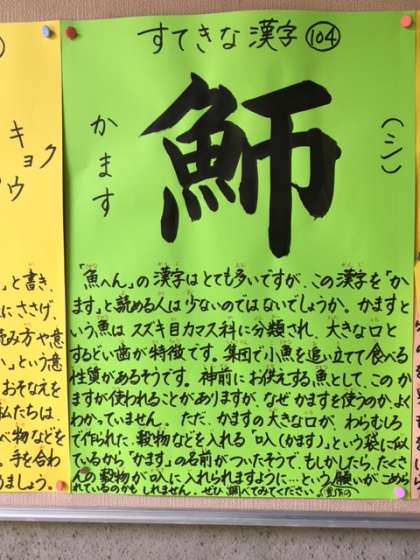 すてきな漢字 104
魳
かます
(シ)
「魚へん」の漢字はとても多いですが、この漢字を「か
ます」と読める人は少ないのではないでしょうか。かますと
いう魚はスズキ目カマス科に分類され、大きな口と
するどい歯が特徴です。集団で小魚を追い立てて食べる
性質があるそうです。神前にお供えする魚として、このか
ますが使われることがありますが、なぜかますを使うのか、よく
わかっていません。ただ、かますの大きな口が、わらむしろ
で作られた、穀物などを入れる「叺(かます)」という袋に似
ているから「かます」の名前がついたそうで、もしかしたら、たくさ
んの穀物が叺に入れられますように…という願いがこめら
れているのかもしれません。ぜひ調べてみてください。
キョク
ウ
」と書き、
にささげ、
読み方や意
い」という意
おそなえを
私たちは、
べ物などを
。手を合わ
ましょう。